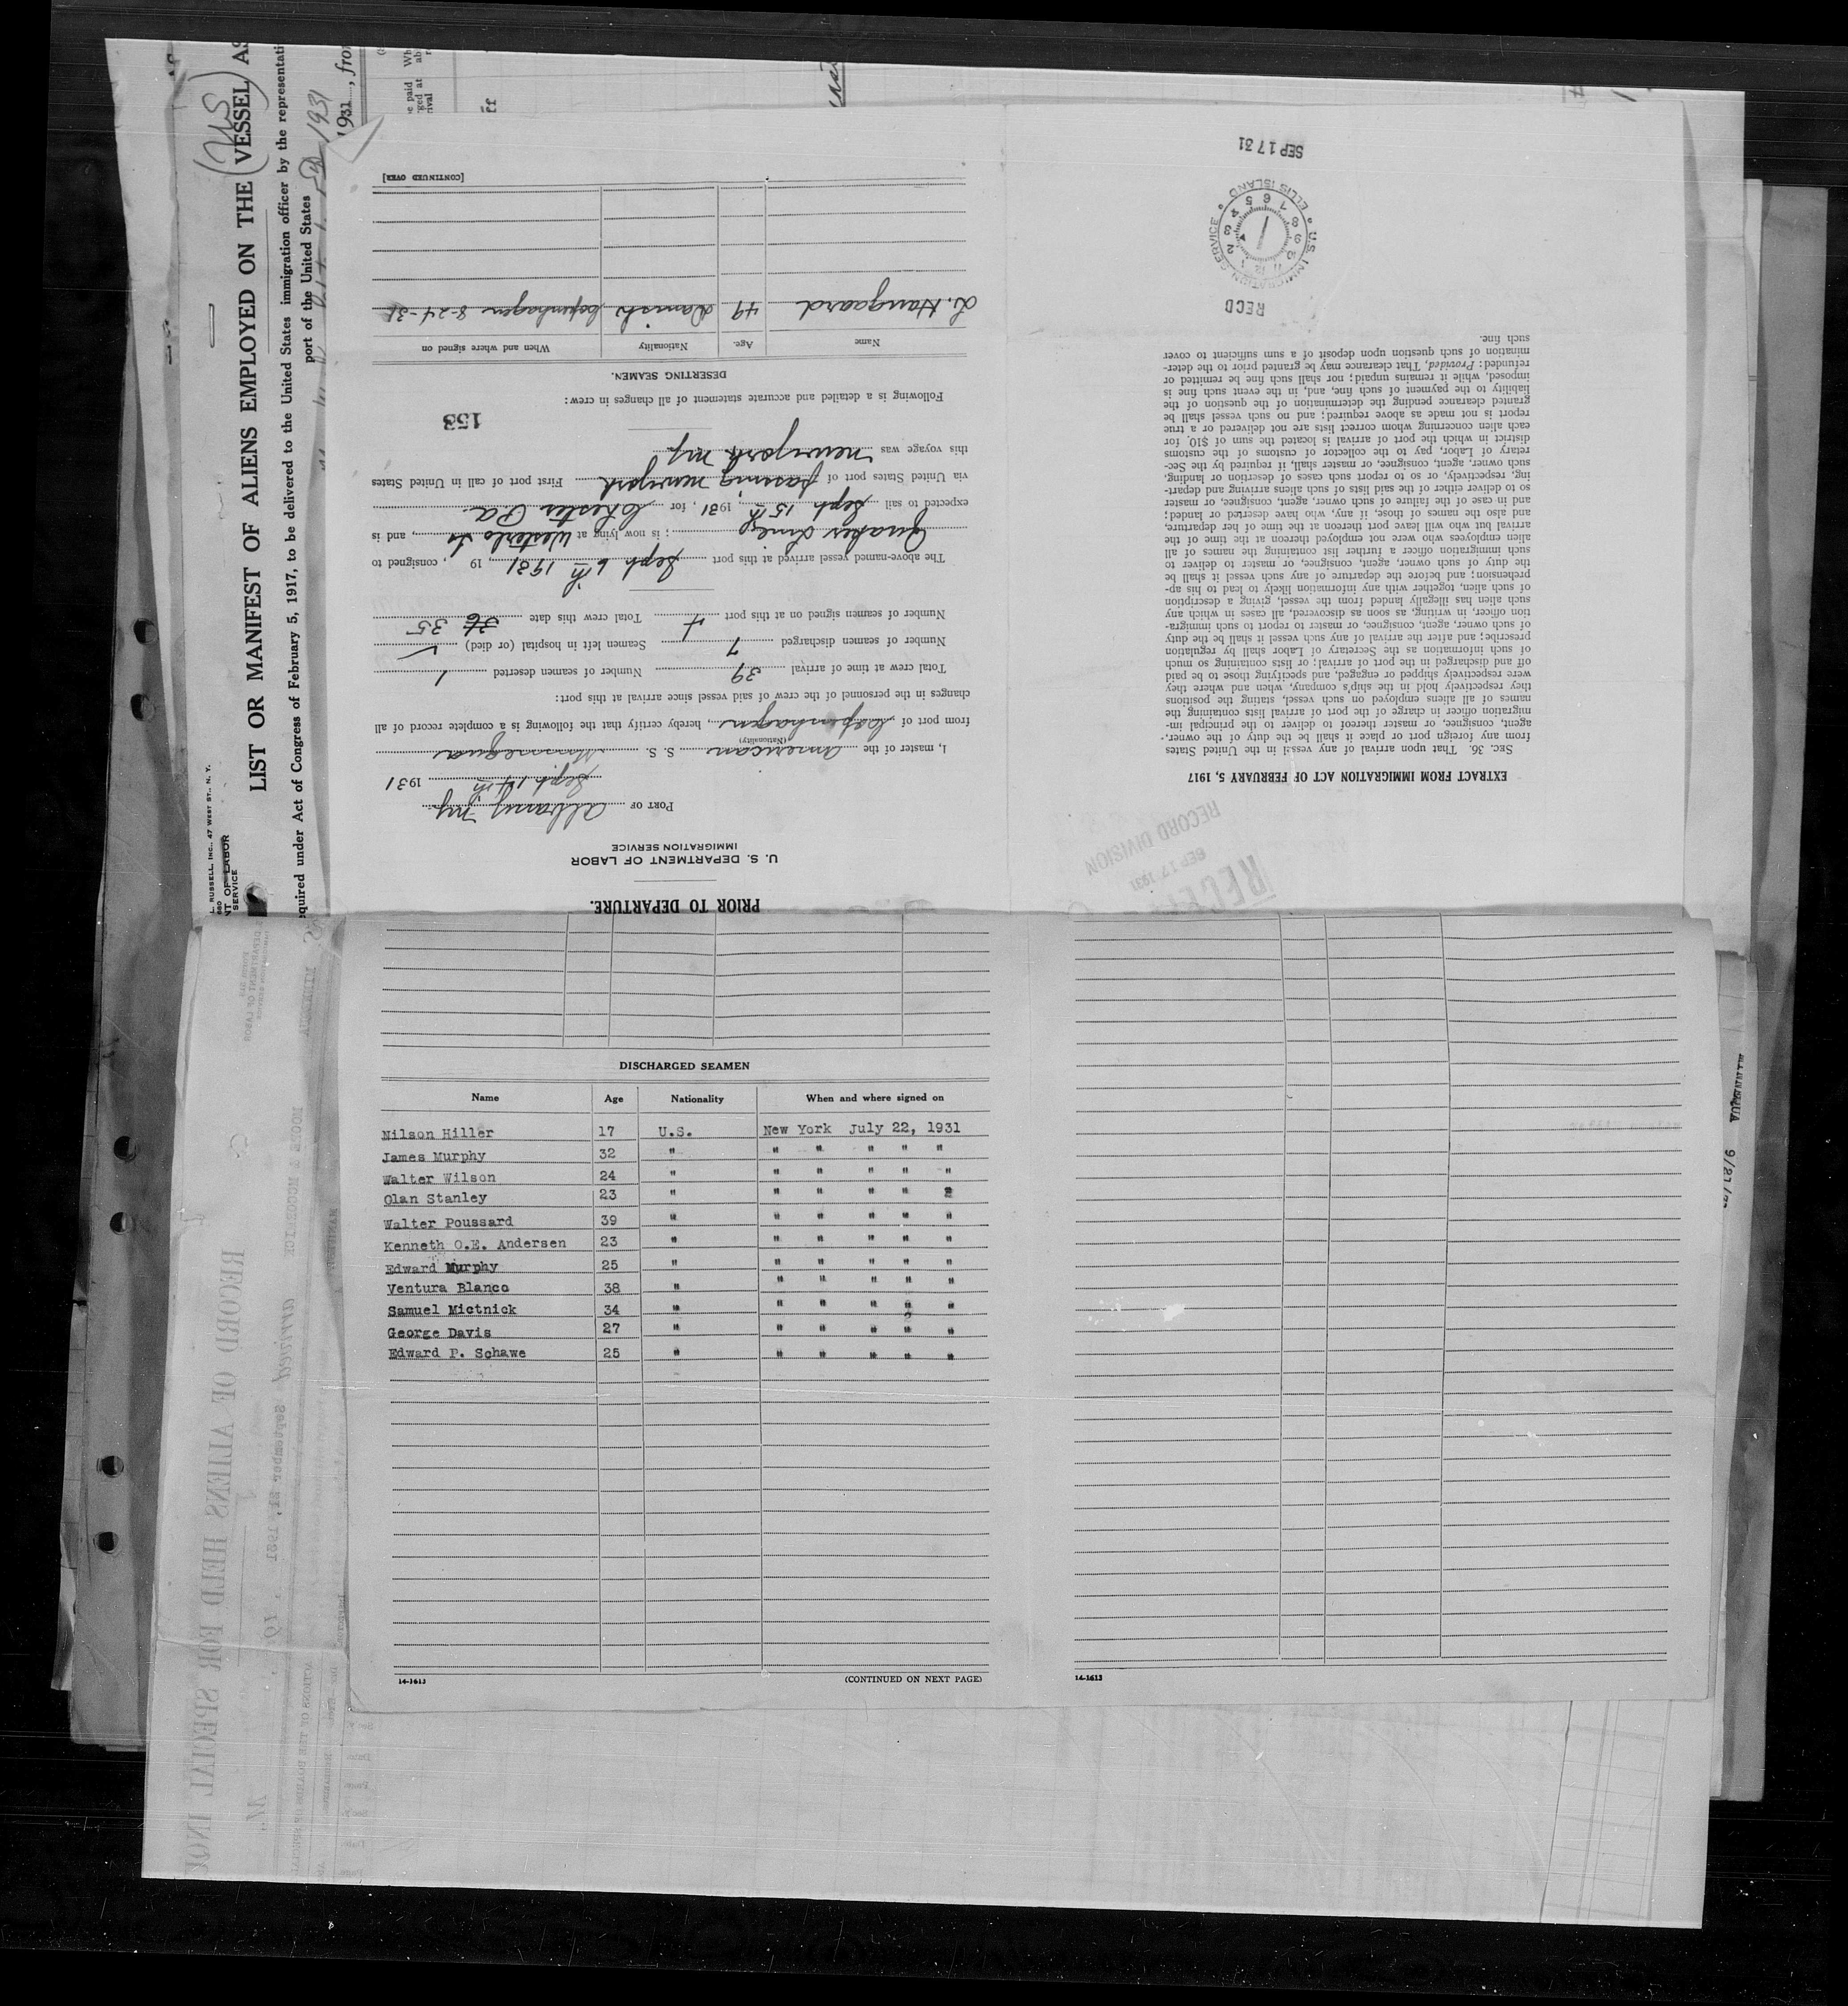 LIST OR MANIFEST OF ALIENS EMPLOYED ON THE VESSEL AS
equired under Act of Congress of February 5, 1917, to be delivered to the United States immigration officer by the representati
port of the United States
L. RUSSELL, INC., 47 WEST ST., N. Y.
NT OF LABOR
SERVICE
PRIOR TO DEPARTURE.
U. S. DEPARTMENT OF LABOR
IMMIGRATION SERVICE
PORT OF Albany ny
Sept 14th 1931
I, master of the American S. S.
(Nationality)
from port of Copenhagen, hereby certify that the following is a complete record of all
changes in the personnel of the crew of said vessel since arrival at this port:
Total crew at time of arrival 39 Number of seamen deserted 1
Number of seamen discharged 7 Seamen left in hospital (or died)
Number of seamen signed on at this port 4 Total crew this date 36 35
The above-named vessel arrived at this port Sept 6th 1931, 19 , consigned to
Quaker Line; is now lying at Westerlo Is, and is
expected to sail Sept 15th, 1931, for Chester Pa.
via United States port of passing newyork First port of call in United States
this voyage was newyork ny
153
Following is a detailed and accurate statement of all changes in crew:
DESERTING SEAMEN.
Name Age. Nationality When and where signed on
L. Haugaard 49 Danish Copenhagen 8-24-31
[CONTINUED OVER]
EXTRACT FROM IMMIGRATION ACT OF FEBRUARY 5, 1917
SEC. 36. That upon arrival of any vessel in the United States
from any foreign port or place it shall be the duty of the owner,
agent, consignee, or master thereof to deliver to the principal im-
migration officer in charge of the port of arrival lists containing the
names of all aliens employed on such vessel, stating the positions
they respectively hold in the ship's company, when and where they
were respectively shipped or engaged, and specifying those to be paid
off and discharged in the port of arrival; or lists containing so much
of such information as the Secretary of Labor shall by regulation
prescribe; and after the arrival of any such vessel it shall be the duty
of such owner, agent, consignee, or master to report to such immigra-
tion officer, in writing, as soon as discovered, all cases in which any
such alien has illegally landed from the vessel, giving a description
of such alien, together with any information likely to lead to his ap-
prehension; and before the departure of any such vessel it shall be
the duty of such owner, agent, consignee, or master to deliver to
such immigration officer a further list containing the names of all
alien employees who were not employed thereon at the time of the
arrival but who will leave port thereon at the time of her departure,
and also the names of those, if any, who have deserted or landed;
and in case of the failure of such owner, agent, consignee, or master
so to deliver either of the said lists of such aliens arriving and depart-
ing, respectively, or so to report such cases of desertion or landing,
such owner, agent, consignee, or master shall, if required by the Sec-
retary of Labor, pay to the collector of customs of the customs
district in which the port of arrival is located the sum of $10 for
each alien concerning whom correct lists are not delivered or a true
report is not made as above required; and no such vessel shall be
granted clearance pending the determination of the question of the
liability to the payment of such fine, and, in the event such fine is
imposed, while it remains unpaid; nor shall such fine be remitted or
refunded: Provided, That clearance may be granted prior to the deter-
mination of such question upon deposit of a sum sufficient to cover
such fine.
RECD
U.S. IMMIGRATION SERVICE
ELLIS ISLAND
SEP 17 31
SEP 17 1931
RECORD DIVISION
DISCHARGED SEAMEN
Name Age Nationality When and where signed on
Nilson Hiller 17 U.S. New York July 22, 1931
James Murphy 32 " " " " " "
Walter Wilson 24 " " " " " "
Olan Stanley 23 " " " " " "
Walter Poussard 39 " " " " " "
Kenneth O.E. Andersen 23 " " " " " "
Edward Murphy 25 " " " " " "
Ventura Blanco 38 " " " " " "
Samuel Mictnick 34 " " " " " "
George Davis 27 " " " " " "
Edward P. Schawe 25 " " " " " "
14-1613 (CONTINUED ON NEXT PAGE)
14-1613
RECORD OF ALIENS HELD FOR SPECIAL INQU